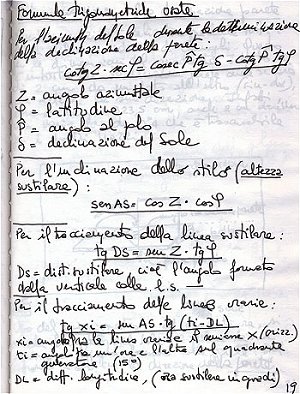 Formule trigonometriche usate
Per l'azimut del Sole durante la determinazione
della declinazione della parete:
cotg Z · sec φ = cosec P tg δ - cotg P tg φ
Z = angolo azimutale
φ = latitudine
P = angolo al polo
δ = declinazione del Sole
Per l'inclinazione dello stilo (altezza
sustilare):
sen AS = cos Z · cos φ
Per il tracciamento della linea sustilare:
tg DS = sen Z · tg φ
DS = dist. sustilare cioè l'angolo formato
dalla verticale colla l.s.
Per il tracciamento delle linee orarie:
tg xi = sen AS · tg (ti - DL)
xi = angolo fra le linee orarie e (orizz.)
ti = angolo un'ora e l'altra sul quadrante
(15°)
DL = diff. longitudine, (ora sustilare in gradi)
19